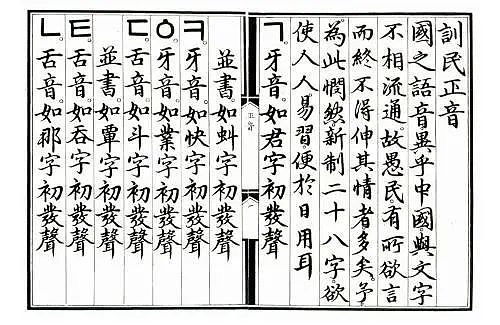 訓民正音
國之語音異乎中國與文字
不相流通。故愚民有所欲言
而終不得伸其情者多矣。予
為此憫然。新制二十八字。欲
使人人易習。便於日用耳
ㄱ。牙音。如君字初發聲
正音
並書。如虯字初發聲
ㅋ。牙音。如快字初發聲
ㆁ。牙音。如業字初發聲
ㄷ。舌音。如斗字初發聲
並書。如覃字初發聲
ㅌ。舌音。如呑字初發聲
ㄴ。舌音。如那字初發聲